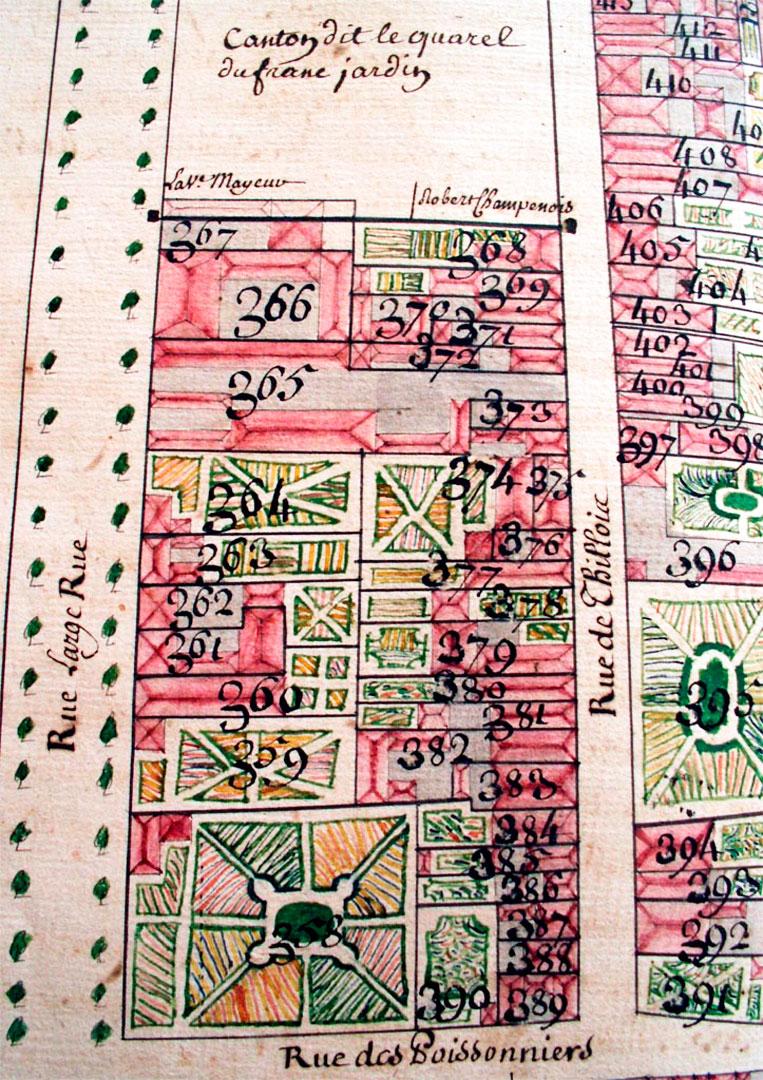 Canton dit le quarel
du franc jardin
La Ve Mayeur
Robert Champenois
367
368
369
366
370
371
372
365
373
374
375
264
376
263
377
378
262
261
379
380
360
381
382
359
383
384
385
386
358
387
388
390
389
Rue Large Rue
Rue de Thilloic
Rue des Poissonniers
413
412
411
410
408
407
406
405
404
403
402
401
400
399
397
398
396
395
394
393
392
391